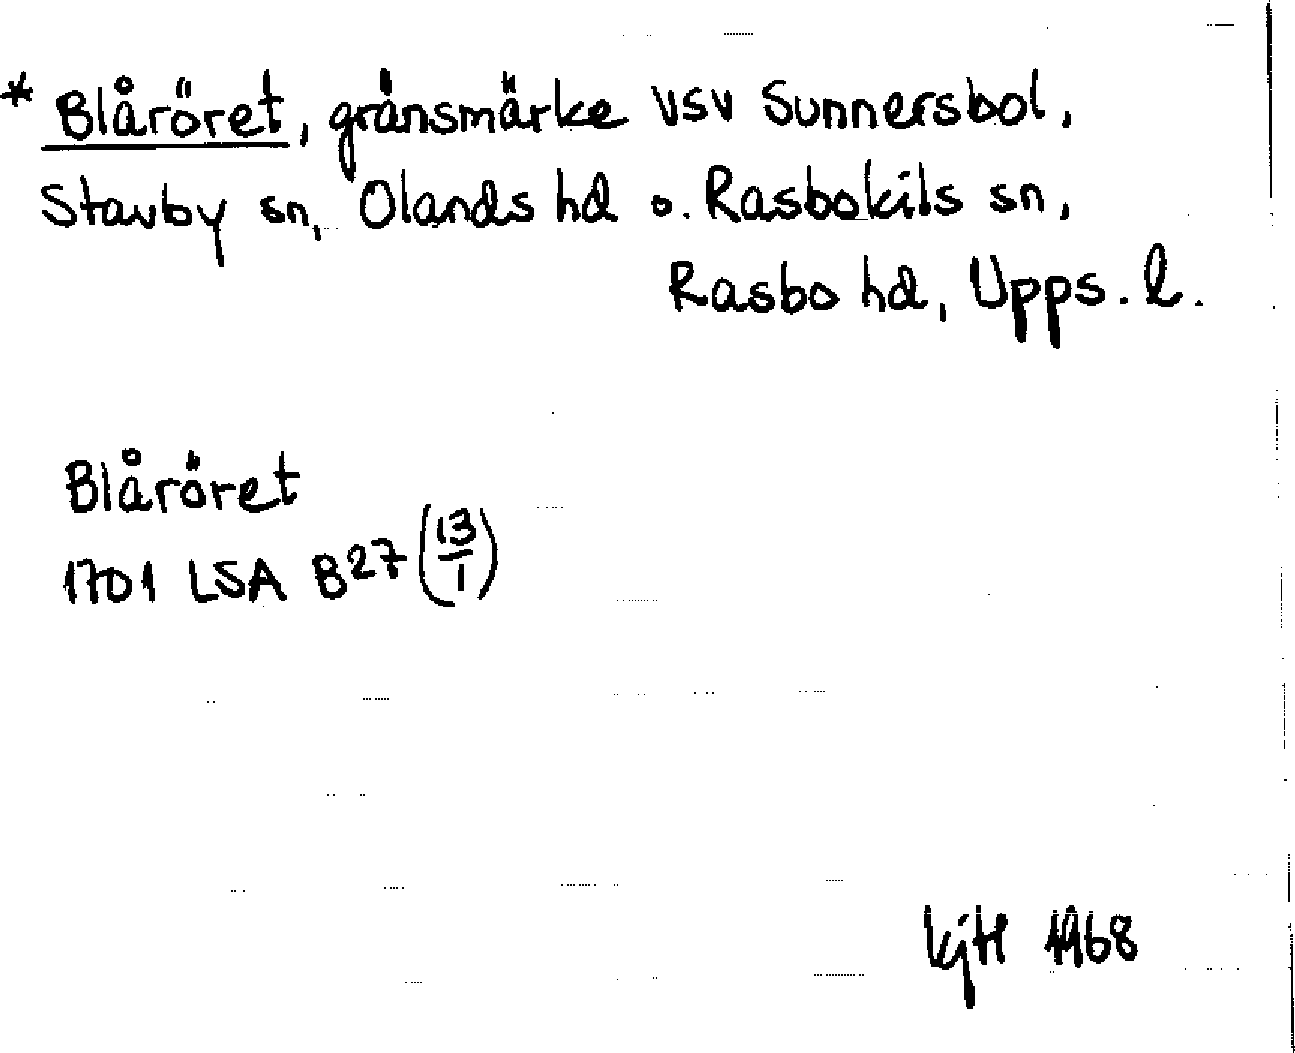 * Blåröret, gränsmärke VSV Sunnersbol,
Stavby sn, Olands hd o. Rasbokils sn,
Rasbo hd, Upps. l.
Blåröret
1701 LSA B27 (13/1)
KjH 1968